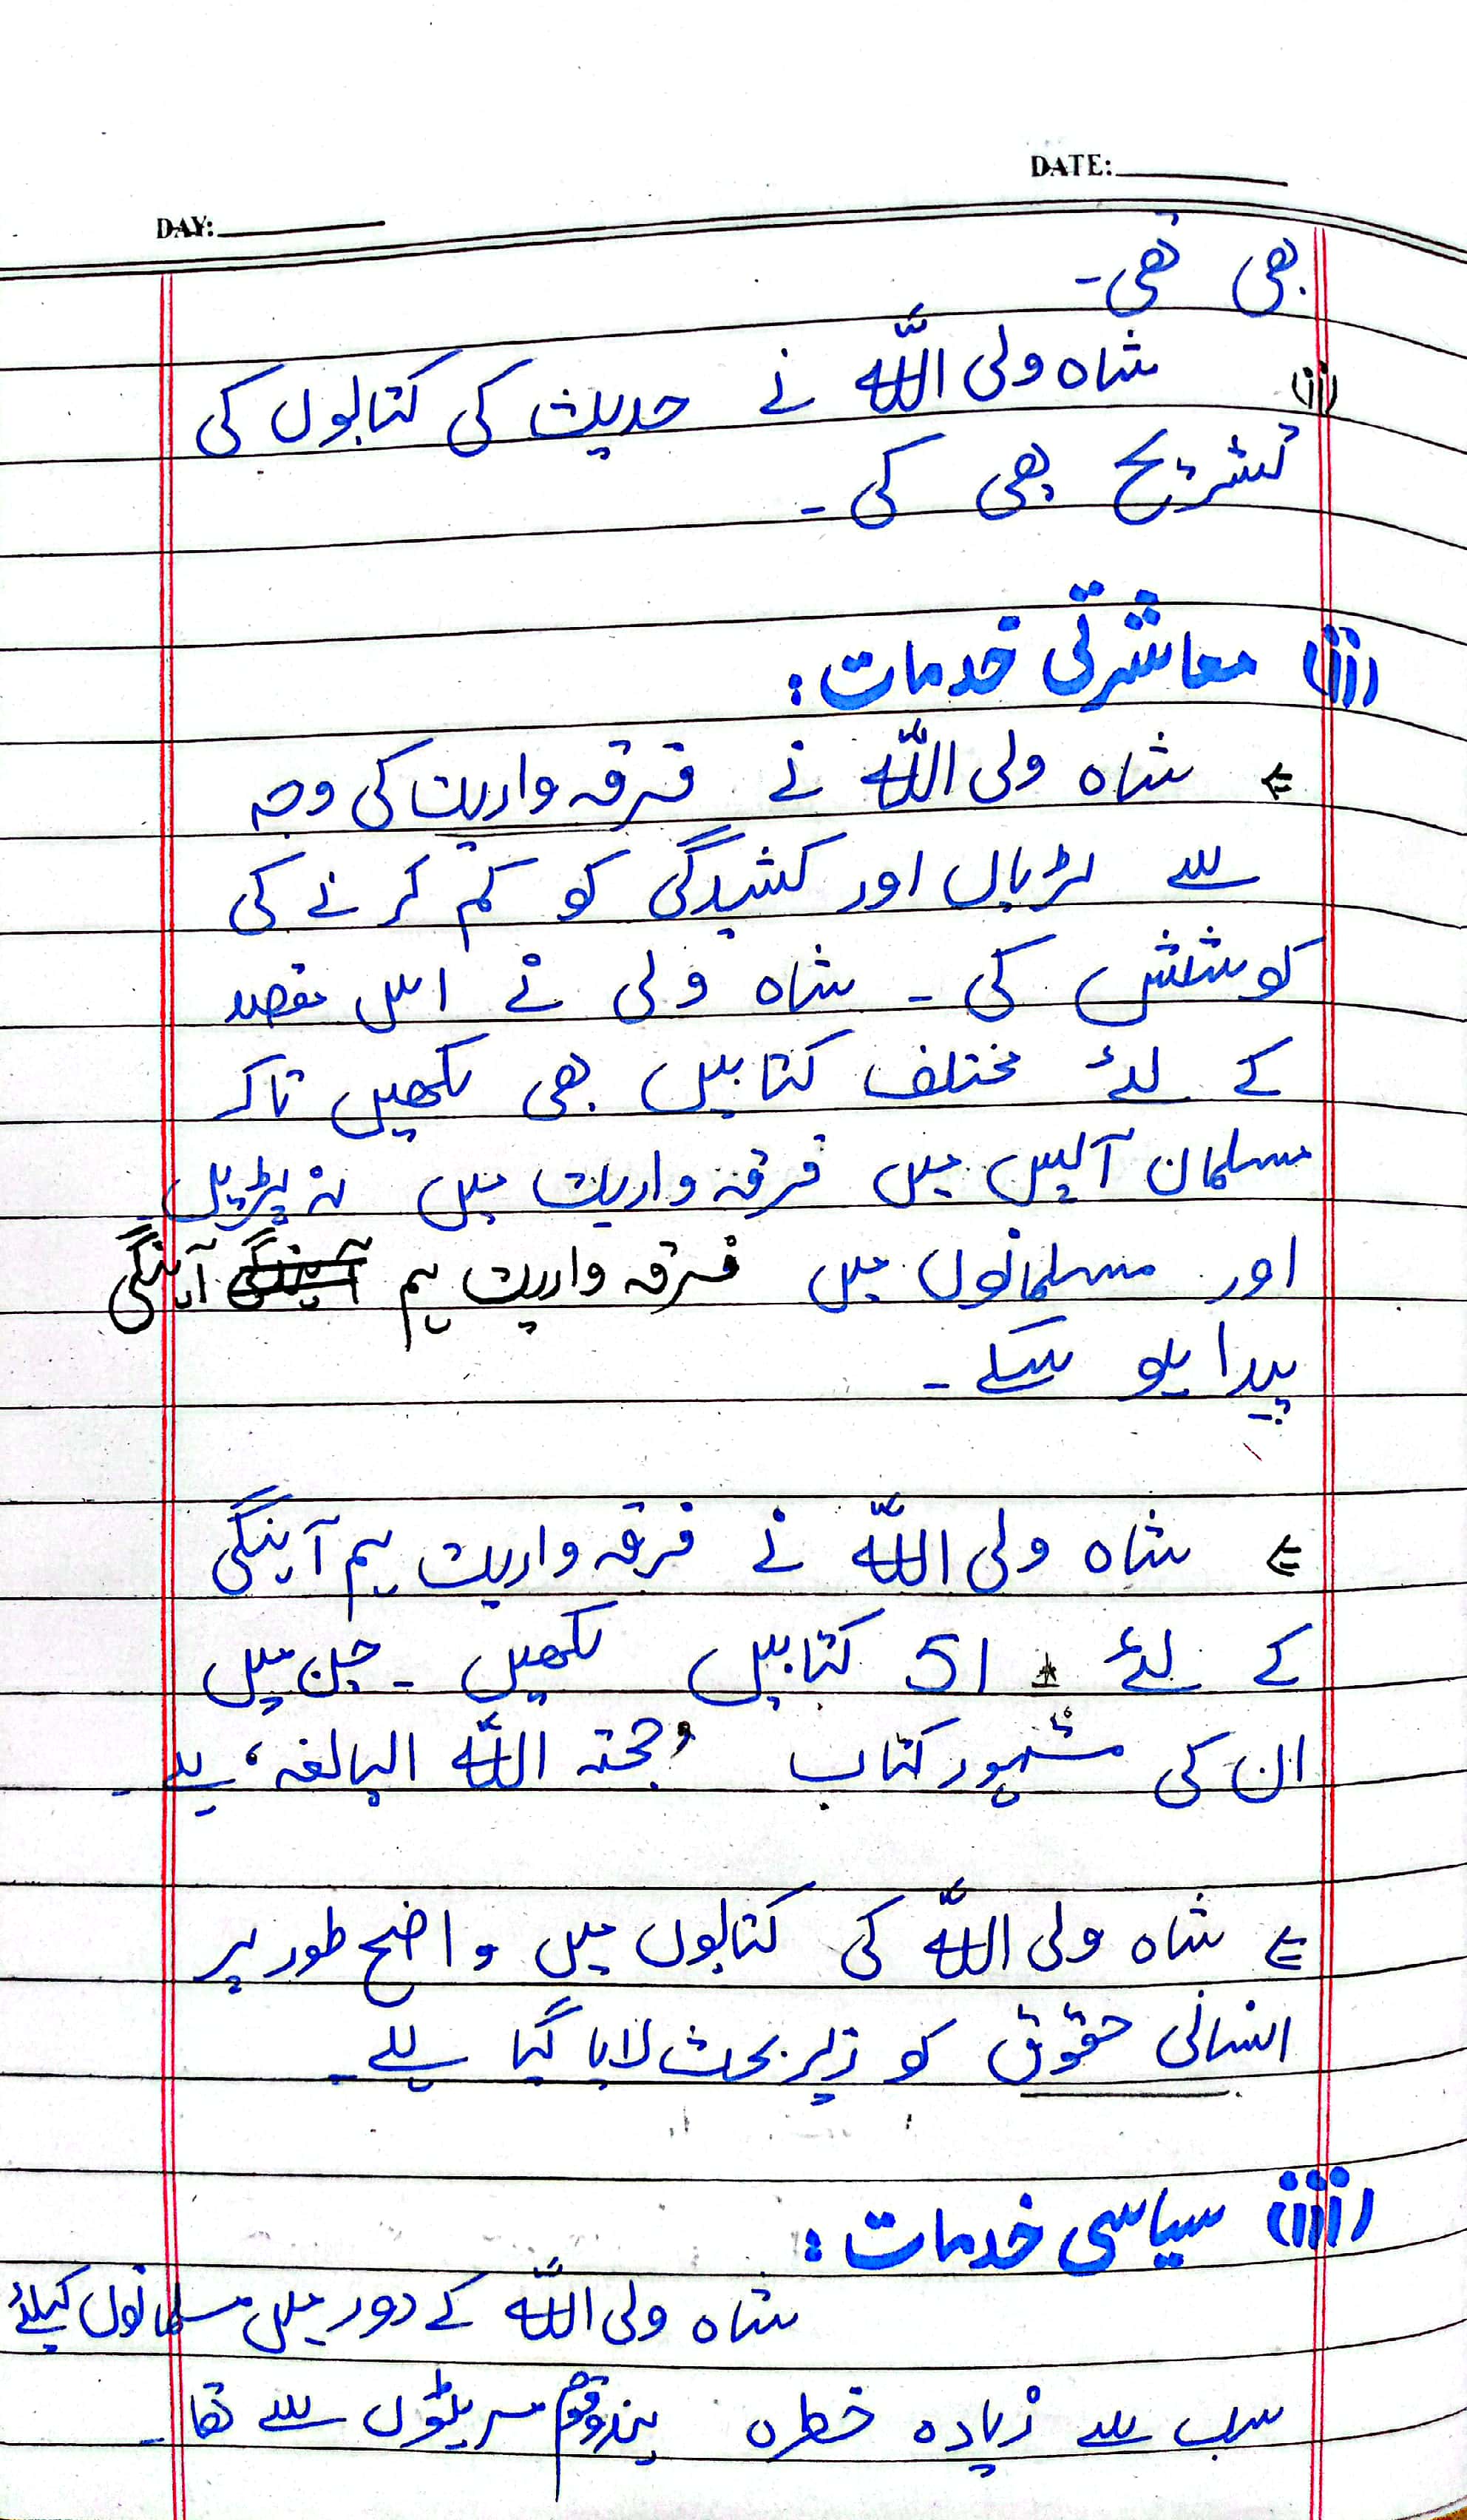 DATE:
DAY:
بھی تھی۔
(ii) شاہ ولی اللّٰہ نے حدیث کی کتابوں کی
تشریح بھی کی۔
(ii) معاشرتی خدمات:
⇐ شاہ ولی اللّٰہ نے فرقہ واریت کی وجہ
سے لڑیاں اور کشیدگی کو کم کرنے کی
کوشش کی۔ شاہ ولی نے اس مقصد
کے لئے مختلف کتابیں بھی لکھیں تاکہ
مسلمان آپس میں فرقہ واریت میں نہ پڑیں۔
اور مسلمانوں میں فرقہ واریت ہم آہنگی
پیدا ہو سکے۔
⇐ شاہ ولی اللّٰہ نے فرقہ واریت ہم آہنگی
کے لئے 51 کتابیں لکھیں۔ جن میں
ان کی مشہور کتاب ’حجتہ اللّٰہ البالغہ‘ ہے۔
⇐ شاہ ولی اللّٰہ کی کتابوں میں واضح طور پر
انسانی حقوق کو زیر بحث لایا گیا ہے۔
(iii) سیاسی خدمات:
شاہ ولی اللّٰہ کے دور میں مسلمانوں کیلئے
سب سے زیادہ خطرہ ہندو قوم مرہٹوں سے تھا۔